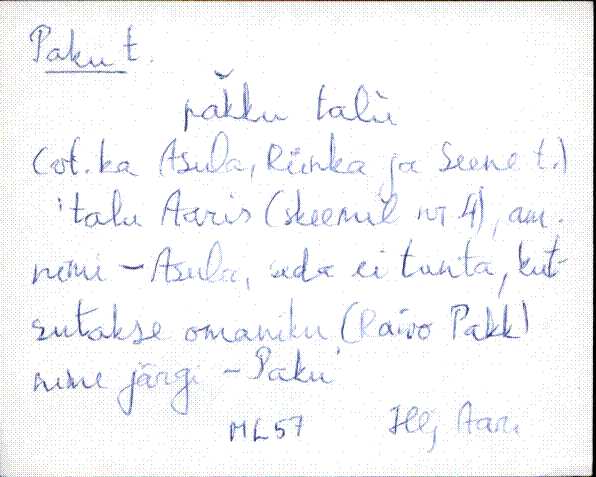 Paku t.
păkku talù
(vt. ka Asula, Riinka ja Seene t.)
'talu Aaris (skeemil nr 4), am.
nimi – Asula, seda ei tunta, kut-
sutakse omaniku (Raivo Pakk)
nime järgi – Paku'
ML57 Hlj Aari